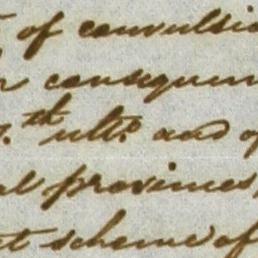 of convulsio
consequen
th ulto and of
al provinces,
et scheme of